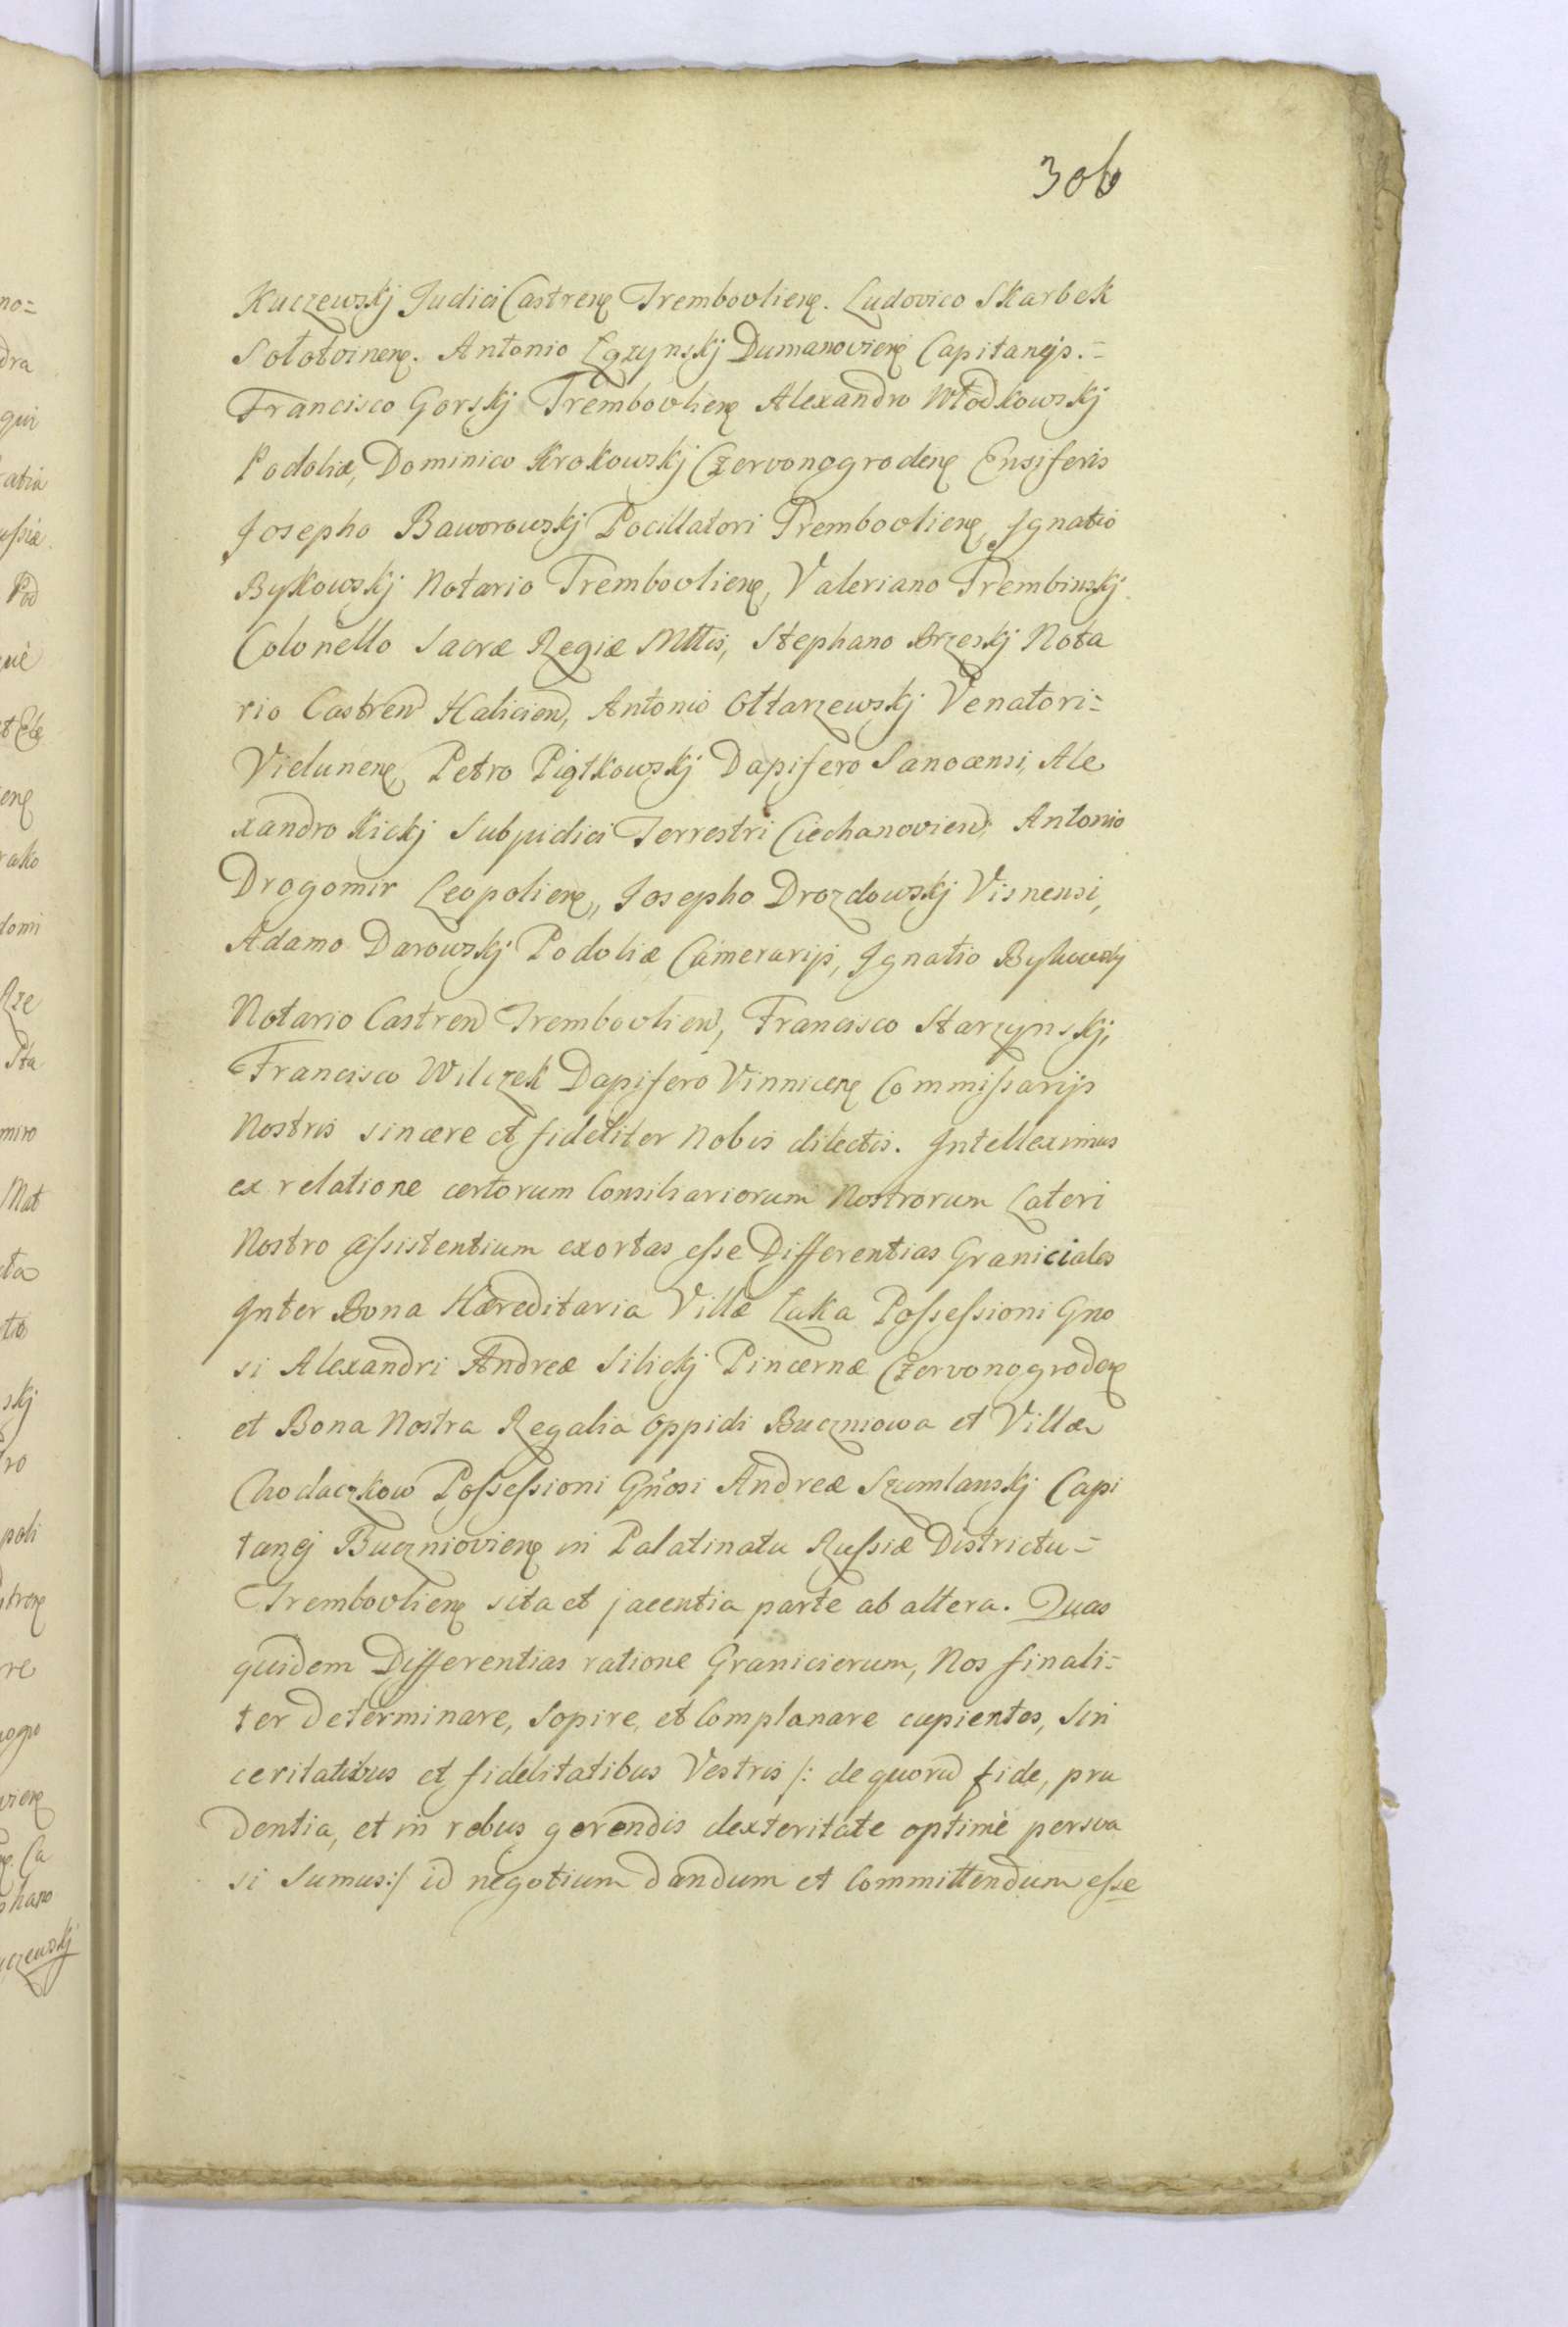 306
Kuczewskj Judici Castrenę Trembovlienę. Ludovico Skarbek
Sołotvinenę. Antonio Łązynskj Dumanovienę Capitaneįs.=
Francisco Gorskj Trembovlienę Alexandro Włodkowskj
Podoliæ, Dominico Krokowskj Czervonogrodenę Ensiferis
Josepho Baworowskj Pocillatori Trembovlienę, Ignatio
Bykowskj Notario Trembovlienę, Valeriano Trembinskj
Colonello Sacræ Regiæ Mttis, Stephano Brzeskj Nota
rio Castren Halicien, Antonio Ołtarzewskj Venatori=
Vielunenę, Petro Piątkowskj Dapifero Sanocensi, Ale
xandro Kickj Subjudici Terrestri Ciechanovien, Antonio
Drogomir Leopolienę, Josepho Drozdowskj Visnensi,
Adamo Darowskj Podoliæ Camerarijs, Ignatio Bykowskj
Notario Castren Trembovlien, Francisco Starzynskj,
Francisco Wilczek Dapifero Vinnicenę Commissarijs
Nostris sincere et fideliter Nobis dilectis. Intelleximus
ex relatione certorum Consiliariorum Nostrorum Lateri
Nostro assistentium exortas esse Differentias Graniciales
Inter Bona Hæreditaria Villæ Łuka Possessioni Gno
si Alexandri Andreæ Silickj Pincernæ Czervonogrodenę
et Bona Nostra Regalia Oppidi Buczniowa et Villæ
Chodaczkow Possessioni Gnosi Andreæ Szumlanskj Capi
tanej Buczniovienę in Palatinatu Russiæ Districtu=
Trembovlienę sita et jacentia parte ab altera. Quas
quidem Differentias ratione Granicierum, Nos finali=
ter determinare, Sopire, et Complanare cupientes, Sin
ceritatibus et fidelitatibus Vestris /: de quorū fide, pru
dentia, et in rebus gerendis dexteritate optimè persva
si Sumus:/ id negotium dandum et Committendum esse